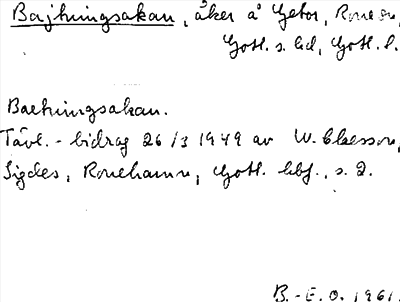 Bajhningsakan, åker å Getor, Rone sn,
Gotl. s. hd, Gotl. l.
Baehningsakan.
Tävl.-bidrag 26/3 1949 av W. Claesson,
Sigdes, Ronehamn, Gotl. hbf., s. 2.
B.-E. O. 1961.